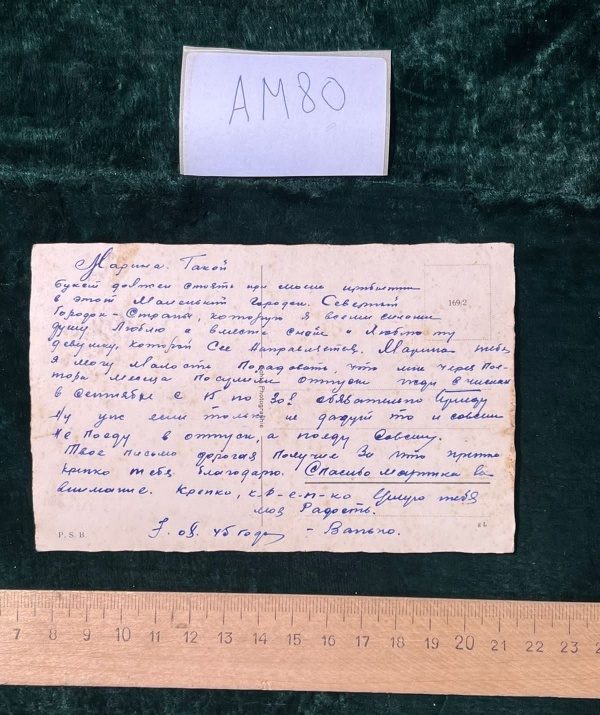 АМ80
Марина. Такой
букет должен стоять при моем прибытии
в этой маленький городок. Северный
Городок-Страны, которую я всеми силами
душу люблю а вместе с ней и люблю ту
девушку, которой Сее направляется. Марина тебя
я могу малость порадовать, что мне через Пол-
тора месяца посулили отпуск жди в числах
в сентября с 15 по 30го обязательно Приеду
Ну уже если только не дадут то и совсем
не поеду в отпуск, а поеду совсем.
Твое письмо дорогая получил за что
крепко тебя благодарю. Спасибо за
внимание. Крепко, к-р-е-п-ко Целую тебя
моя Радость.
45 года - Ванько.
Echte Photographie
169/2
P. S. B.
7 8 9 10 11 12 13 14 15 16 17 18 19 20 21 22 23